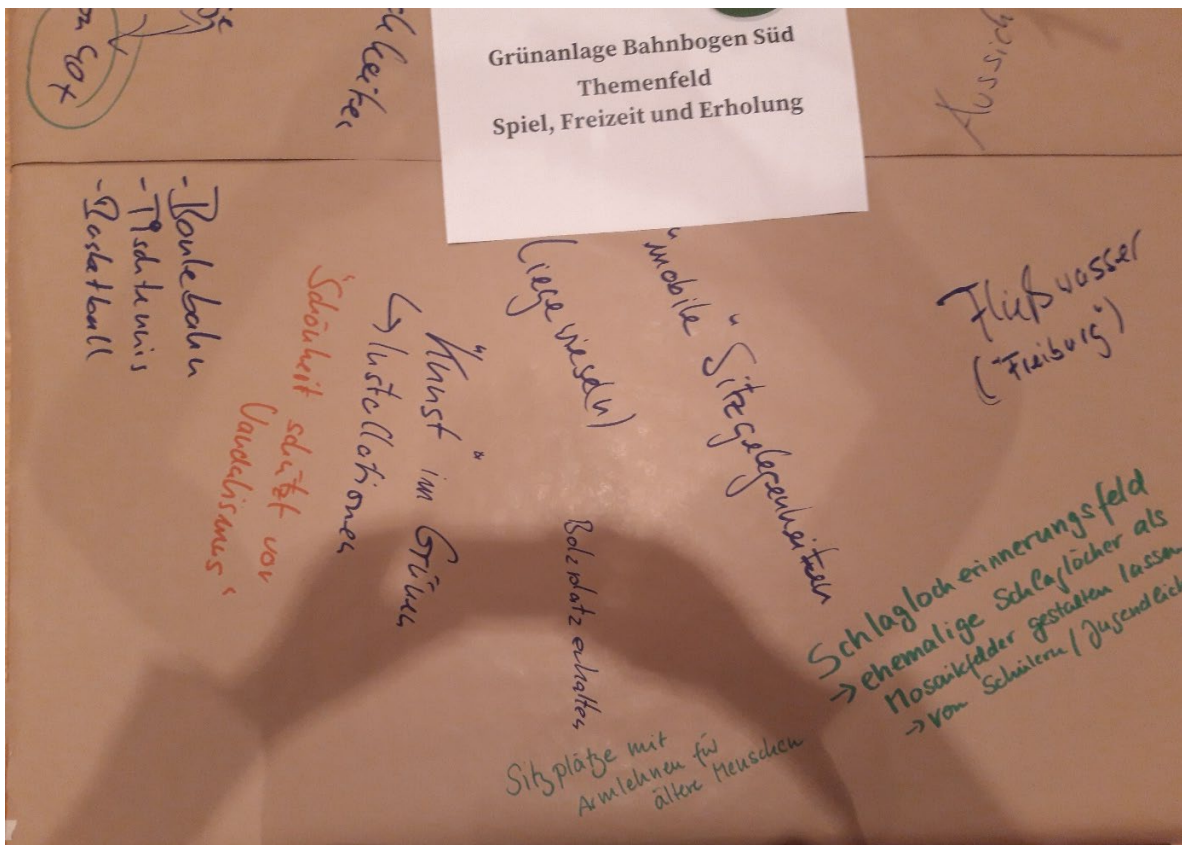 Grünanlage Bahnbogen Süd
Themenfeld
Spiel, Freizeit und Erholung
- Boulebahn
- Tischtennis
- Basketball
"Schönheit schützt vor
Vandalismus"
"Kunst" im Grünen
↳ Installationen
(Liegewieseln)
"mobile" Sitzgelegenheiten
Fließwasser
("Freiburg")
Bolzplatz erhalten
Sitzplätze mit
Armlehnen für
ältere Menschen
Schlaglocherinnerungsfeld
→ ehemalige Schlaglöcher als
Mosaikfelder gestalten lassen
→ von Schülern / Jugendlich